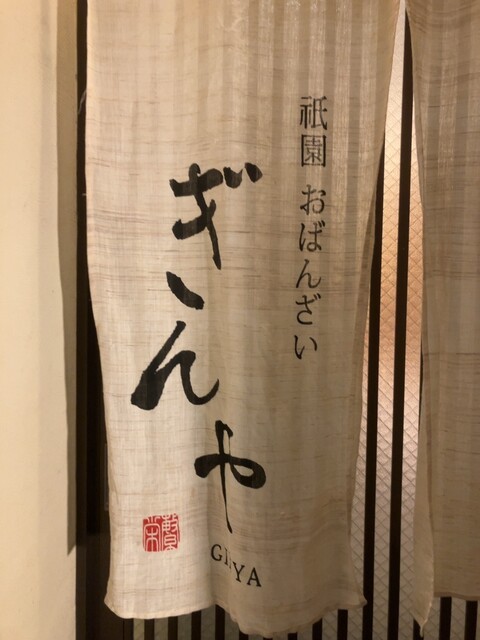 祇園 おばんざい
ぎんや